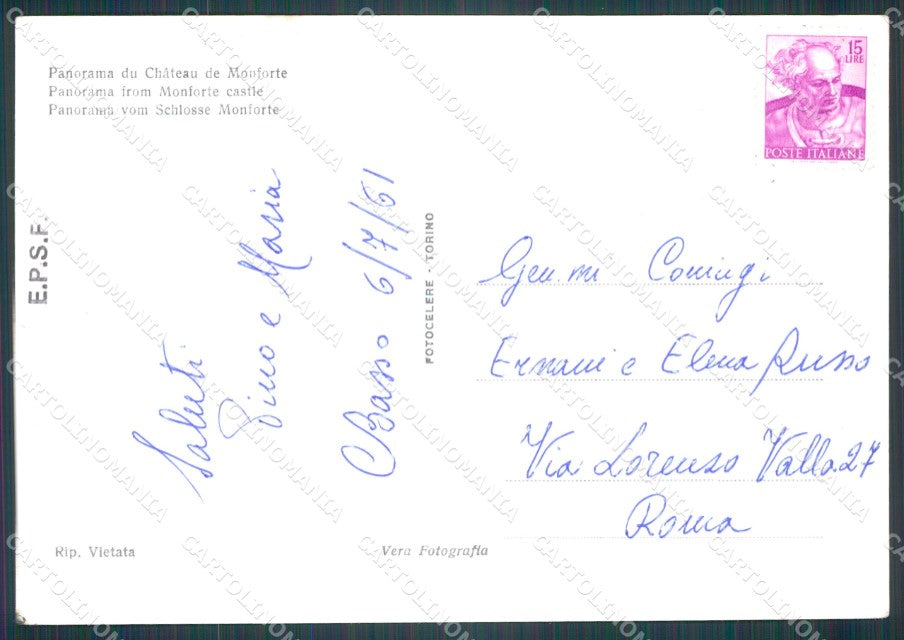 Panorama du Château de Monforte
Panorama from Monforte castle
Panorama vom Schlosse Monforte
E.P.S.F.
Saluti
Pino e Maria
Basso 6/7/61
FOTOCELERE - TORINO
15
LIRE
POSTE ITALIANE
Gen.mi Coniugi
Ernani e Elena Russo
Via Lorenzo Valla 27
Roma
Rip. Vietata
Vera Fotografia
CARTOLINOMANIA